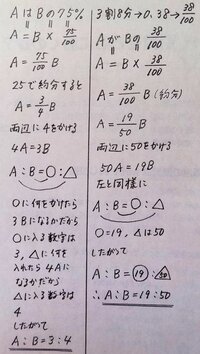 Aは Bの 75%
A = B × 75/100
A = 75/100 B
25で約分すると
A = 3/4 B
両辺に4をかける
4A = 3B
A : B = ○ : △
○に何をかけたら
3Bになるかだから
○に入る数字は
3, △に何を
入れたら 4Aに
なるかだから
△に入る数字は
4
したがって
A : B = 3 : 4
3割8分 → 0.38 → 38/100
Aが Bの 38/100
A = B × 38/100
A = 38/100 B (約分)
A = 19/50 B
両辺に50をかける
50A = 19B
左と同様に
A : B = ○ : △
○=19, △は50
したがって
A : B = 19 : 50
∴ A : B = 19 : 50